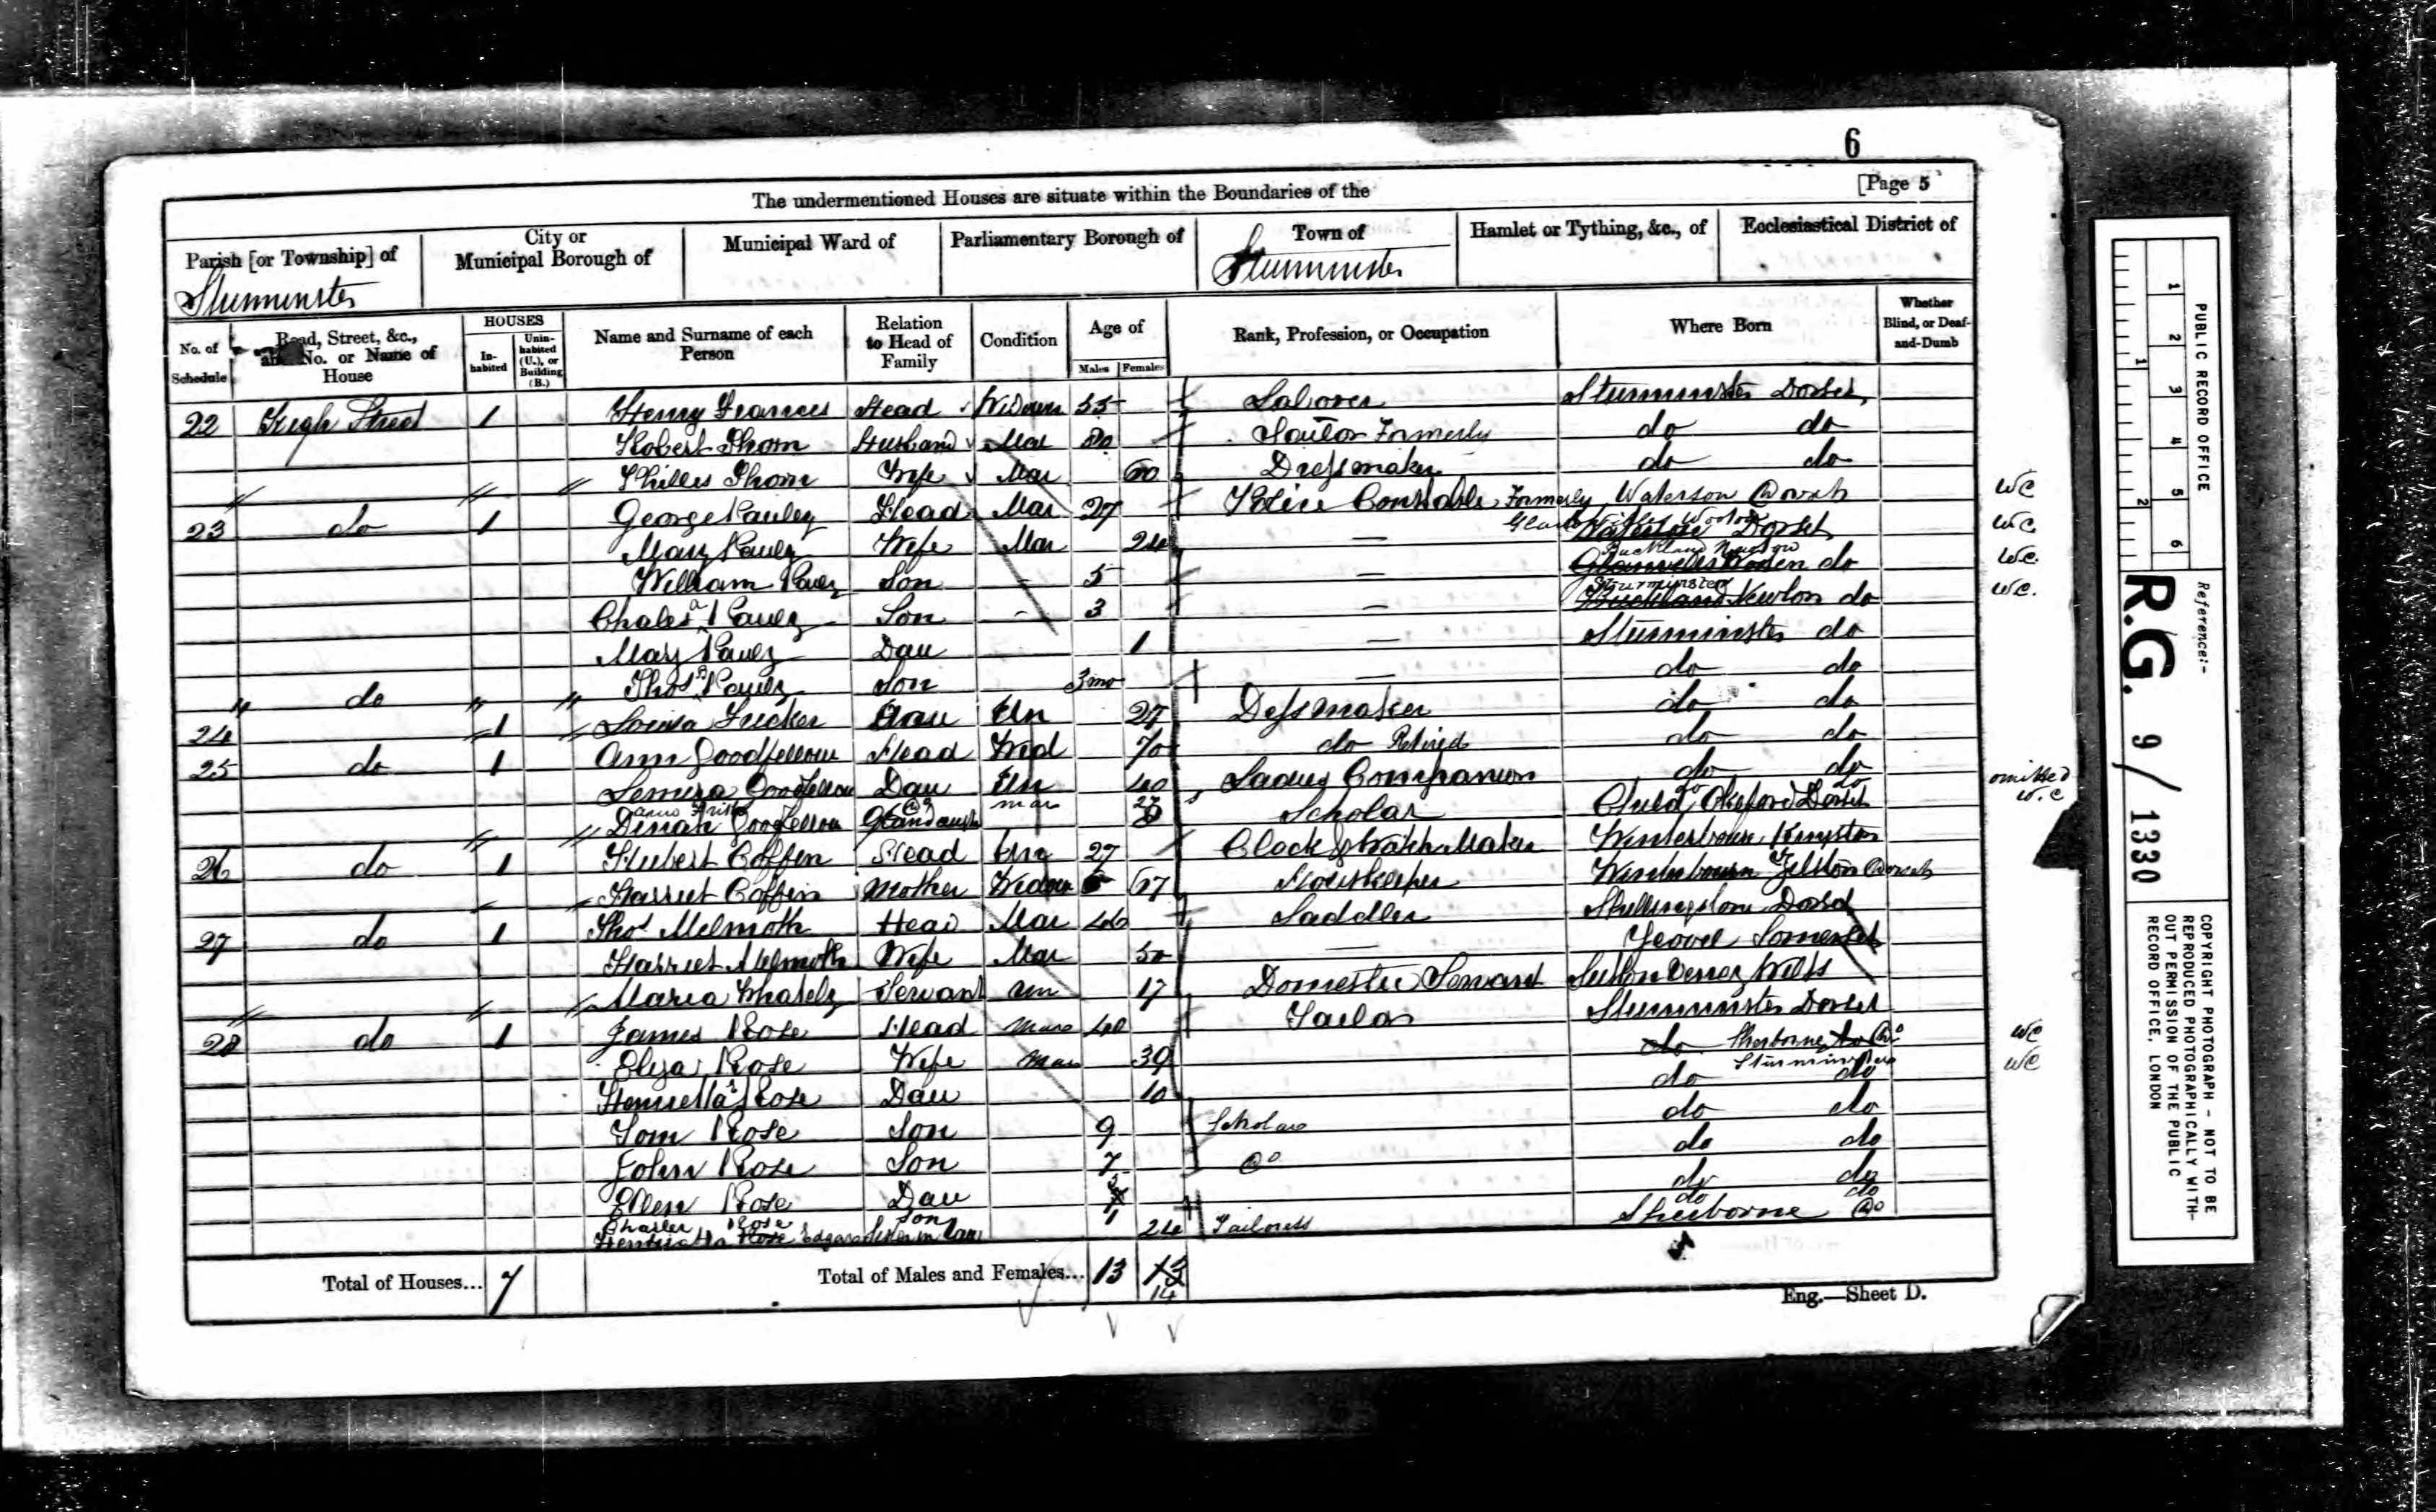 6
The undermentioned Houses are situate within the Boundaries of the
[Page 5
Parish [or Township] of
City or Municipal Borough of
Municipal Ward of
Parliamentary Borough of
Town of
Hamlet or Tything, &c., of
Ecclesiastical District of
Sturminster
Sturminster
No. of Schedule
Road, Street, &c., and No. or Name of House
HOUSES
In-habited
Unin-habited (U.), or Building (B.)
Name and Surname of each Person
Relation to Head of Family
Condition
Age of
Males
Females
Rank, Profession, or Occupation
Where Born
Whether Blind, or Deaf-and-Dumb
22 High Street 1 Henry Frances Head Widower 55 Laborer Sturminster Dorset
Robert Thorn Husband Mar Tailor Formerly do do
Phillis Thorn Wife Mar 60 Dressmaker do do
23 do 1 George Pauley Head Mar 27 Police Constable, Formerly Waterson Dorset WC
Mary Pauley Wife Mar 24 — Glanvilles Wooton Dorset WC
William Pauley Son - 5 — Buckland Newton do WC
Chales Pauley Son - 3 — Sturminster Newton do WC.
Mary Pauley Dau 1 — Sturminster do
" do " " Thos Pauley Son 3 mo — do do
24 1 Louisa Tucker Un 27 Dessmaker do do
25 do 1 Ann Goodfellow Head Wid 70 do Retired do do
Goodfellow Dau Un 40 Ladies Companion do do
omitted W.C
Dinah Goodfellow Grandaughter Scholar Child Okeford Dorset
26 do 1 Hubert Coffen Head Un 27 Clock & Watch Maker Winterbourn Kingston
Harriet Coffen Mother Widow 67 Houskeeper Winterbourn Zelston Dorset
27 do 1 Thos Melmoth Head Mar 46 Saddler Shillingstone Dorset
Harriet Melmoth Wife Mar 50 — Yeovil Somerset
Maria Servant Un 17 Domestic Servant Sutton Veney Wilts
28 do 1 James Rose Head Mar 40 Tailor Sturminster Dorset
Eliza Rose Wife Mar 39 do Sherborne Do WC
Henrietta Rose Dau 10 do Sturminster do WC
Tom Rose Son 9 Scholar do do
John Rose Son 7 Do do do
Ellen Rose Dau do do
Charles Rose Son 1 do do
Henrietta Rose Edgar Sister in Law 24 Tailoress Sherborne Do
Total of Houses... 7
Total of Males and Females... 13 13 14
Eng.—Sheet D.
1 2 3 4 5 6
1 2
PUBLIC RECORD OFFICE
Reference:-
R.G. 9/1330
COPYRIGHT PHOTOGRAPH - NOT TO BE REPRODUCED PHOTOGRAPHICALLY WITHOUT PERMISSION OF THE PUBLIC RECORD OFFICE, LONDON